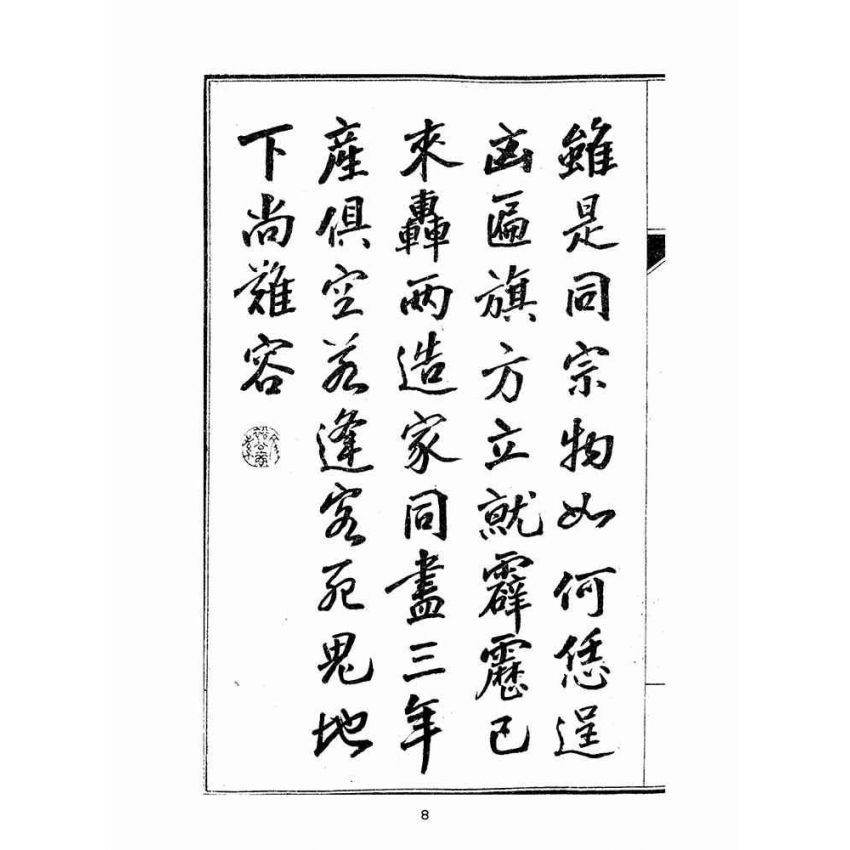 雖是同宗物如何恁逞
凶匾旗方立就霹靂已
來轟兩造家同盡三年
產俱空若逢客死鬼地
下尚難容
8